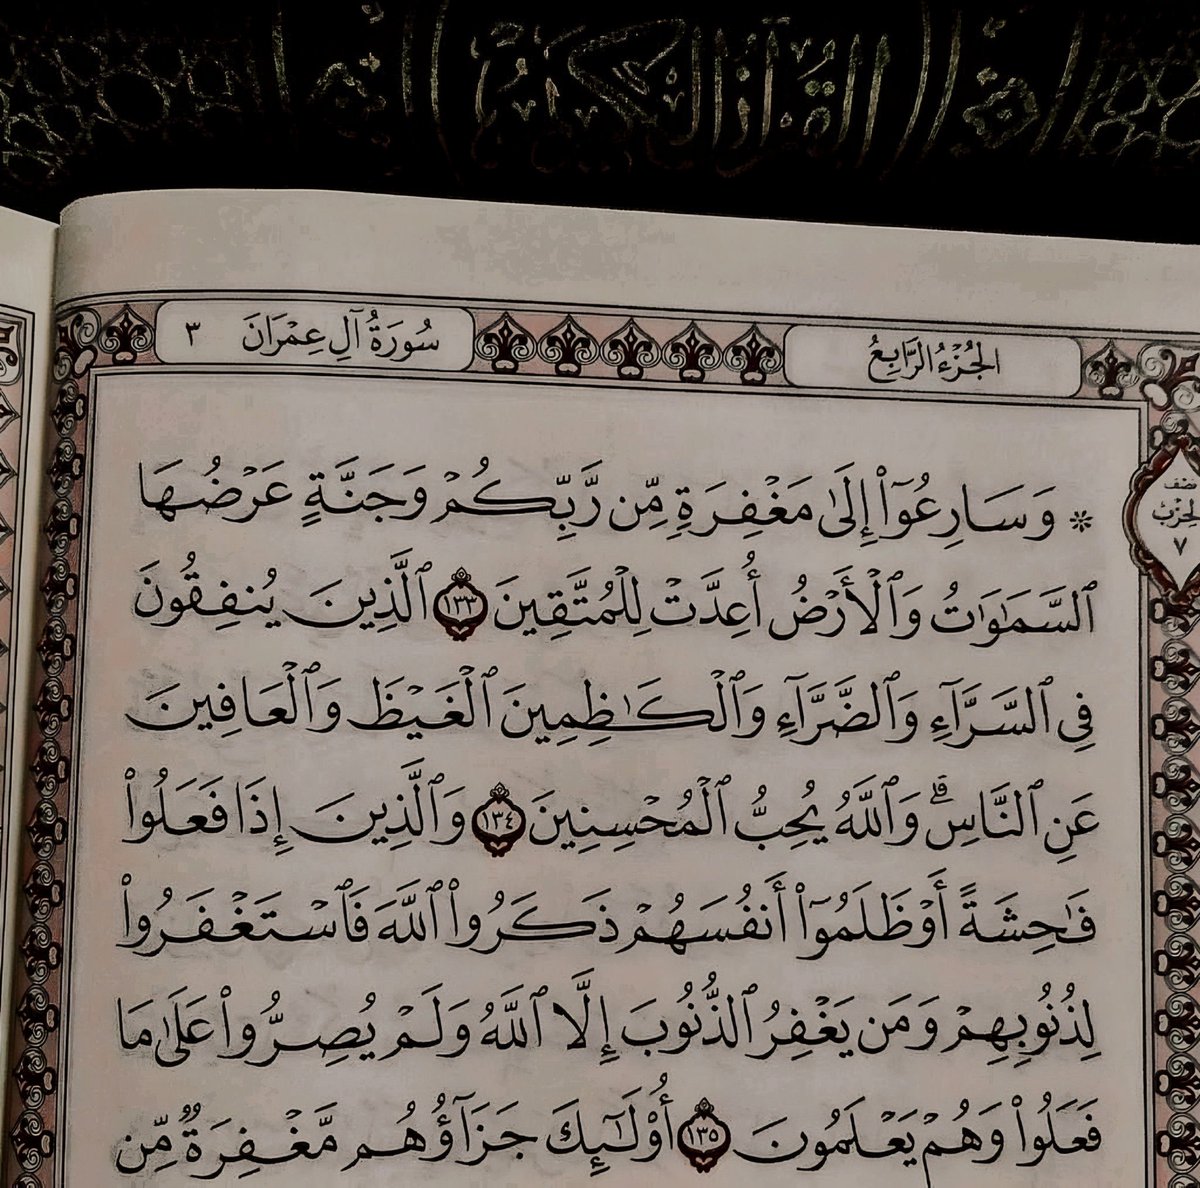 القرآن الكريم
الجزء الرابع
سُورَةُ آلِ عِمْرَانَ ٣
نصف
الحزب
٧
* وَسَارِعُوٓا۟ إِلَىٰ مَغْفِرَةٍ مِّن رَّبِّكُمْ وَجَنَّةٍ عَرْضُهَا
ٱلسَّمَٰوَٰتُ وَٱلْأَرْضُ أُعِدَّتْ لِلْمُتَّقِينَ ١٣٣ ٱلَّذِينَ يُنفِقُونَ
فِى ٱلسَّرَّآءِ وَٱلضَّرَّآءِ وَٱلْكَٰظِمِينَ ٱلْغَيْظَ وَٱلْعَافِينَ
عَنِ ٱلنَّاسِ ۗ وَٱللَّهُ يُحِبُّ ٱلْمُحْسِنِينَ ١٣٤ وَٱلَّذِينَ إِذَا فَعَلُوا۟
فَٰحِشَةً أَوْ ظَلَمُوٓا۟ أَنفُسَهُمْ ذَكَرُوا۟ ٱللَّهَ فَٱسْتَغْفَرُوا۟
لِذُنُوبِهِمْ وَمَن يَغْفِرُ ٱلذُّنُوبَ إِلَّا ٱللَّهُ وَلَمْ يُصِرُّوا۟ عَلَىٰ مَا
فَعَلُوا۟ وَهُمْ يَعْلَمُونَ ١٣٥ أُو۟لَٰٓئِكَ جَزَآؤُهُم مَّغْفِرَةٌ مِّن